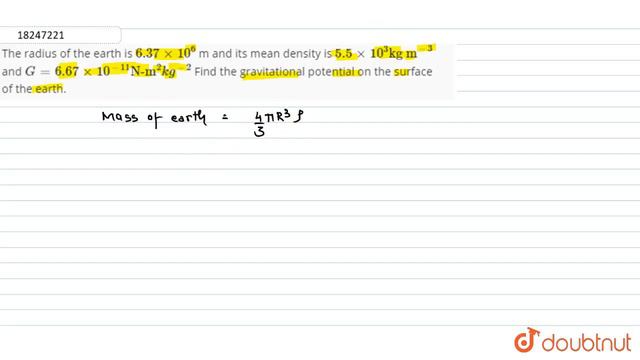 18247221
The radius of the earth is 6.37 × 10⁶ m and its mean density is 5.5 × 10³kg m⁻³
and G = 6.67 × 10⁻¹¹N-m²kg⁻² Find the gravitational potential on the surface
of the earth.
Mass of earth = 4/3 πR³ ρ
doubtnut